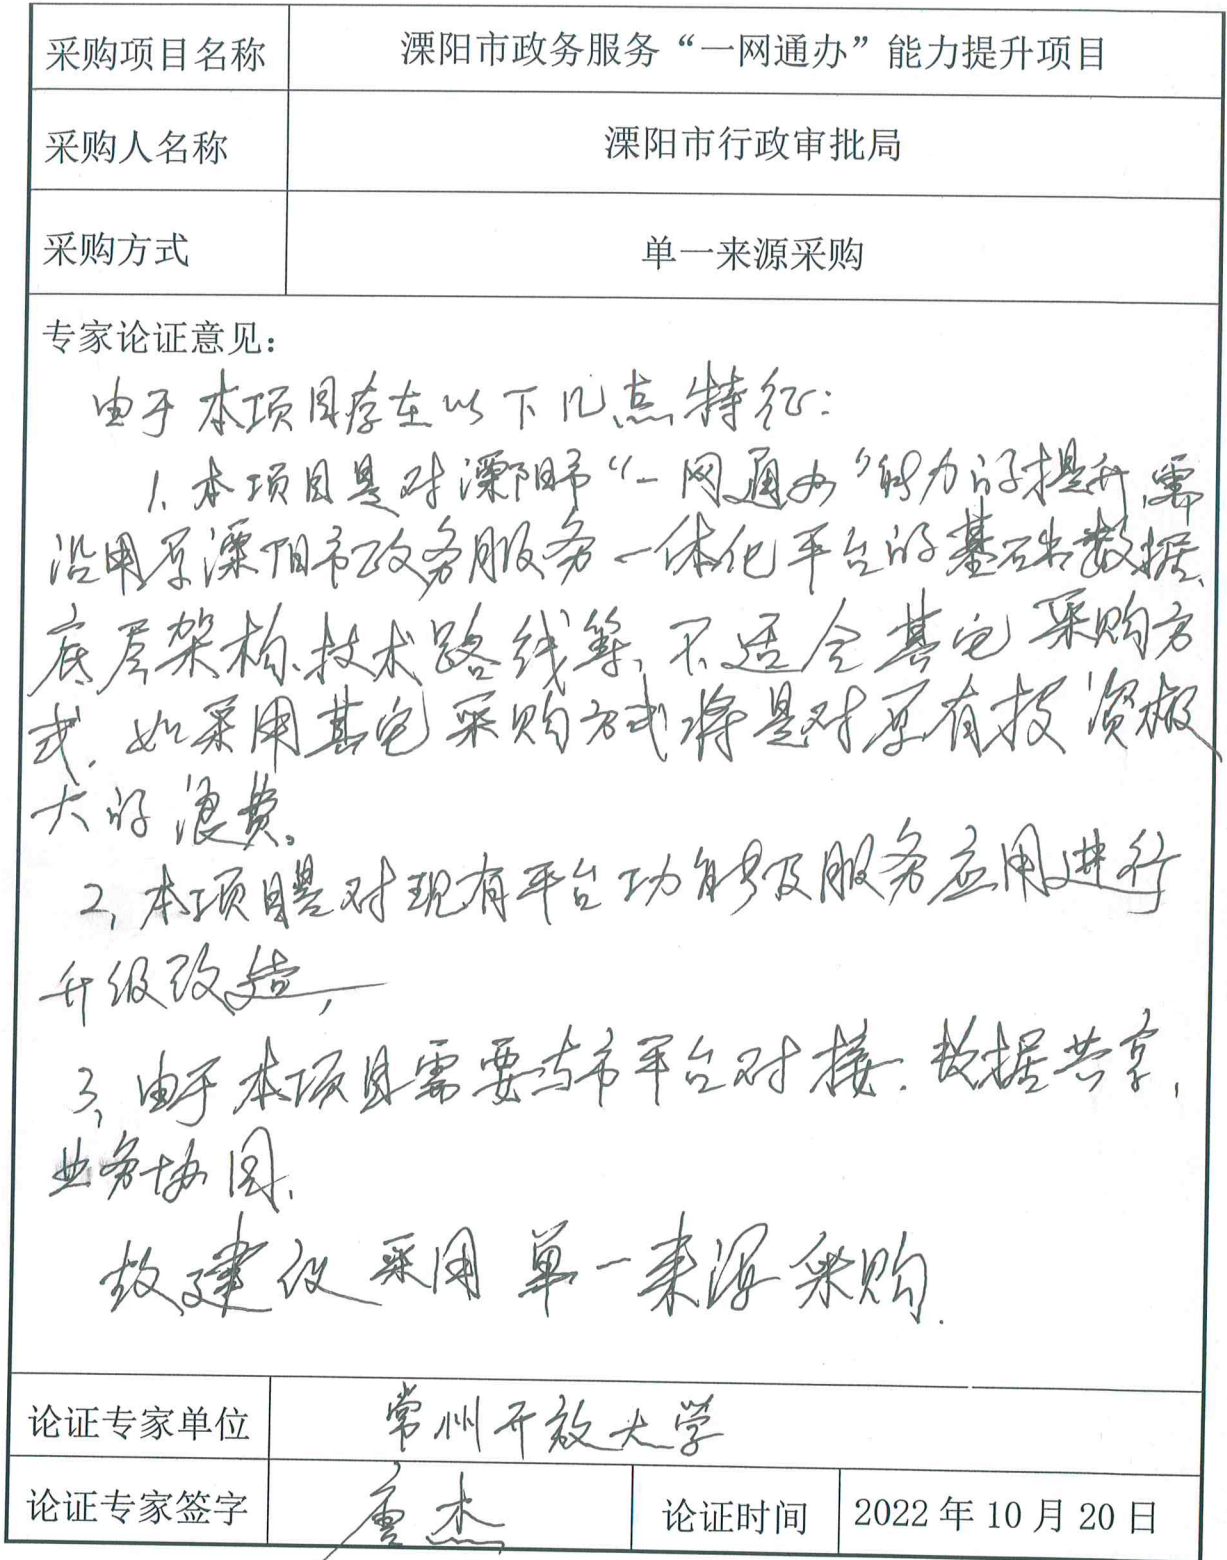 采购项目名称 溧阳市政务服务“一网通办”能力提升项目
采购人名称 溧阳市行政审批局
采购方式 单一来源采购
专家论证意见：
由于本项目存在以下几点特征：
1、本项目是对溧阳市“一网通办”能力的提升，需
沿用原溧阳市政务服务一体化平台的基础数据、
底层架构、技术路线等，不适合其它采购方
式，如采用其它采购方式将是对原有投资极
大的浪费。
2、本项目是对现有平台功能及服务应用进行
升级改造，
3、由于本项目需要与市平台对接、数据共享，
业务协同、
故建议采用单一来源采购.
论证专家单位 常州开放大学
论证专家签字 唐杰 论证时间 2022年10月20日